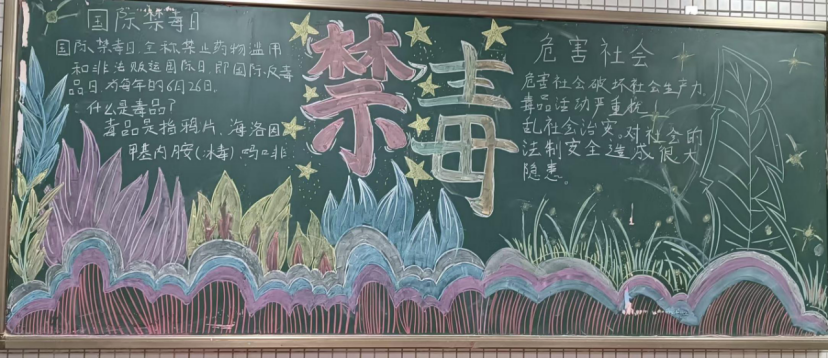 国际禁毒日
国际禁毒日全称禁止药物滥用
和非法贩运国际日,即国际反毒
品日,为每年的6月26日。
什么是毒品?
毒品是指鸦片、海洛因
甲基丙胺(冰毒)吗啡
禁毒
危害社会
危害社会破坏社会生产力,
毒品活动严重扰
乱社会治安,对社会的
法制安全造成很大
隐患。